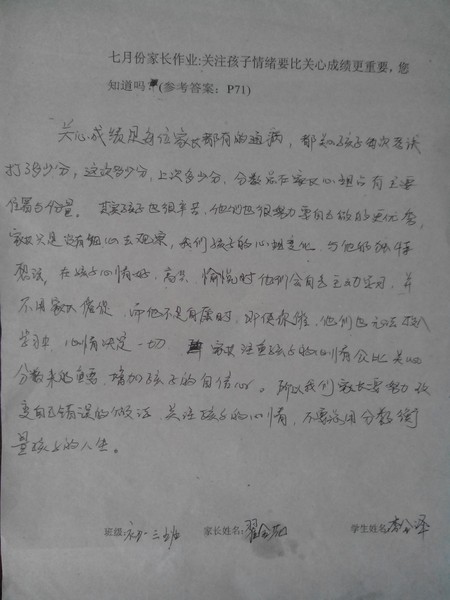 七月份家长作业:关注孩子情绪要比关心成绩更重要，您
知道吗?(参考答案：P71)
关心成绩是每位家长都有的通病，都关心孩子每次考试
打了多少分，这次多少分，上次多少分，分数总在家长心里占有主要
位置与份量。其实孩子也很辛苦，他们也很努力要自己做的更优秀，
家长只是没有细心去观察，我们孩子的心理变化，与他的独特
想法，在孩子心情好，高兴，愉悦时他们会自己主动学习，并
不用家长催促，而他不是有序时，即使你催，他们也无法投入
学习中，心情决定一切，家长注重孩子的心情会比关心
分数来的重要，增加孩子的自信心。所以我们家长要努力改
变自己错误的做法，关注孩子的心情，不要只用分数衡
量孩子的人生。
班级:初一三班 家长姓名: 学生姓名: